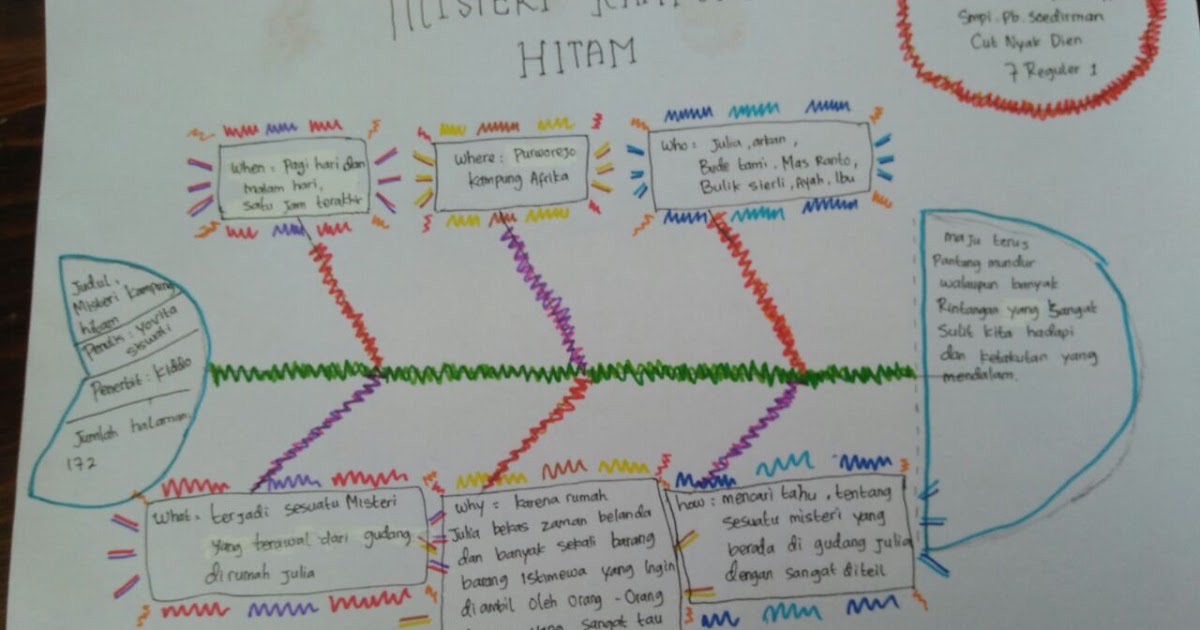 MISTERI
HITAM
Smpi. Pb. Soedirman
Cut Nyak Dien
7 Reguler 1
When = Pagi hari dan
malam hari,
satu jam terakhir
Where : Purworejo
kampung Afrika
Who : Julia, arban,
Bude tami. Mas Ranto,
Bulik sierli, Ayah, Ibu
Judul.
Misteri kampung
hitam
Penulis : Yovita
siswati
Penerbit : Kiddo
Jumlah halaman.
172
maju terus
Pantang mundur
walaupun banyak
Rintangan yang sangat
sulit kita hadapi
dan ketakutan yang
mendalam.
What = terjadi sesuatu Misteri
yang terawal dari gudang
dirumah Julia
Why = karena rumah
Julia bekas zaman belanda
dan banyak sekali barang
barang Istimewa yang Ingin
di ambil oleh orang - Orang
yang sangat tau
how : mencari tahu, tentang
sesuatu misteri yang
berada di gudang Julia
dengan sangat diteil